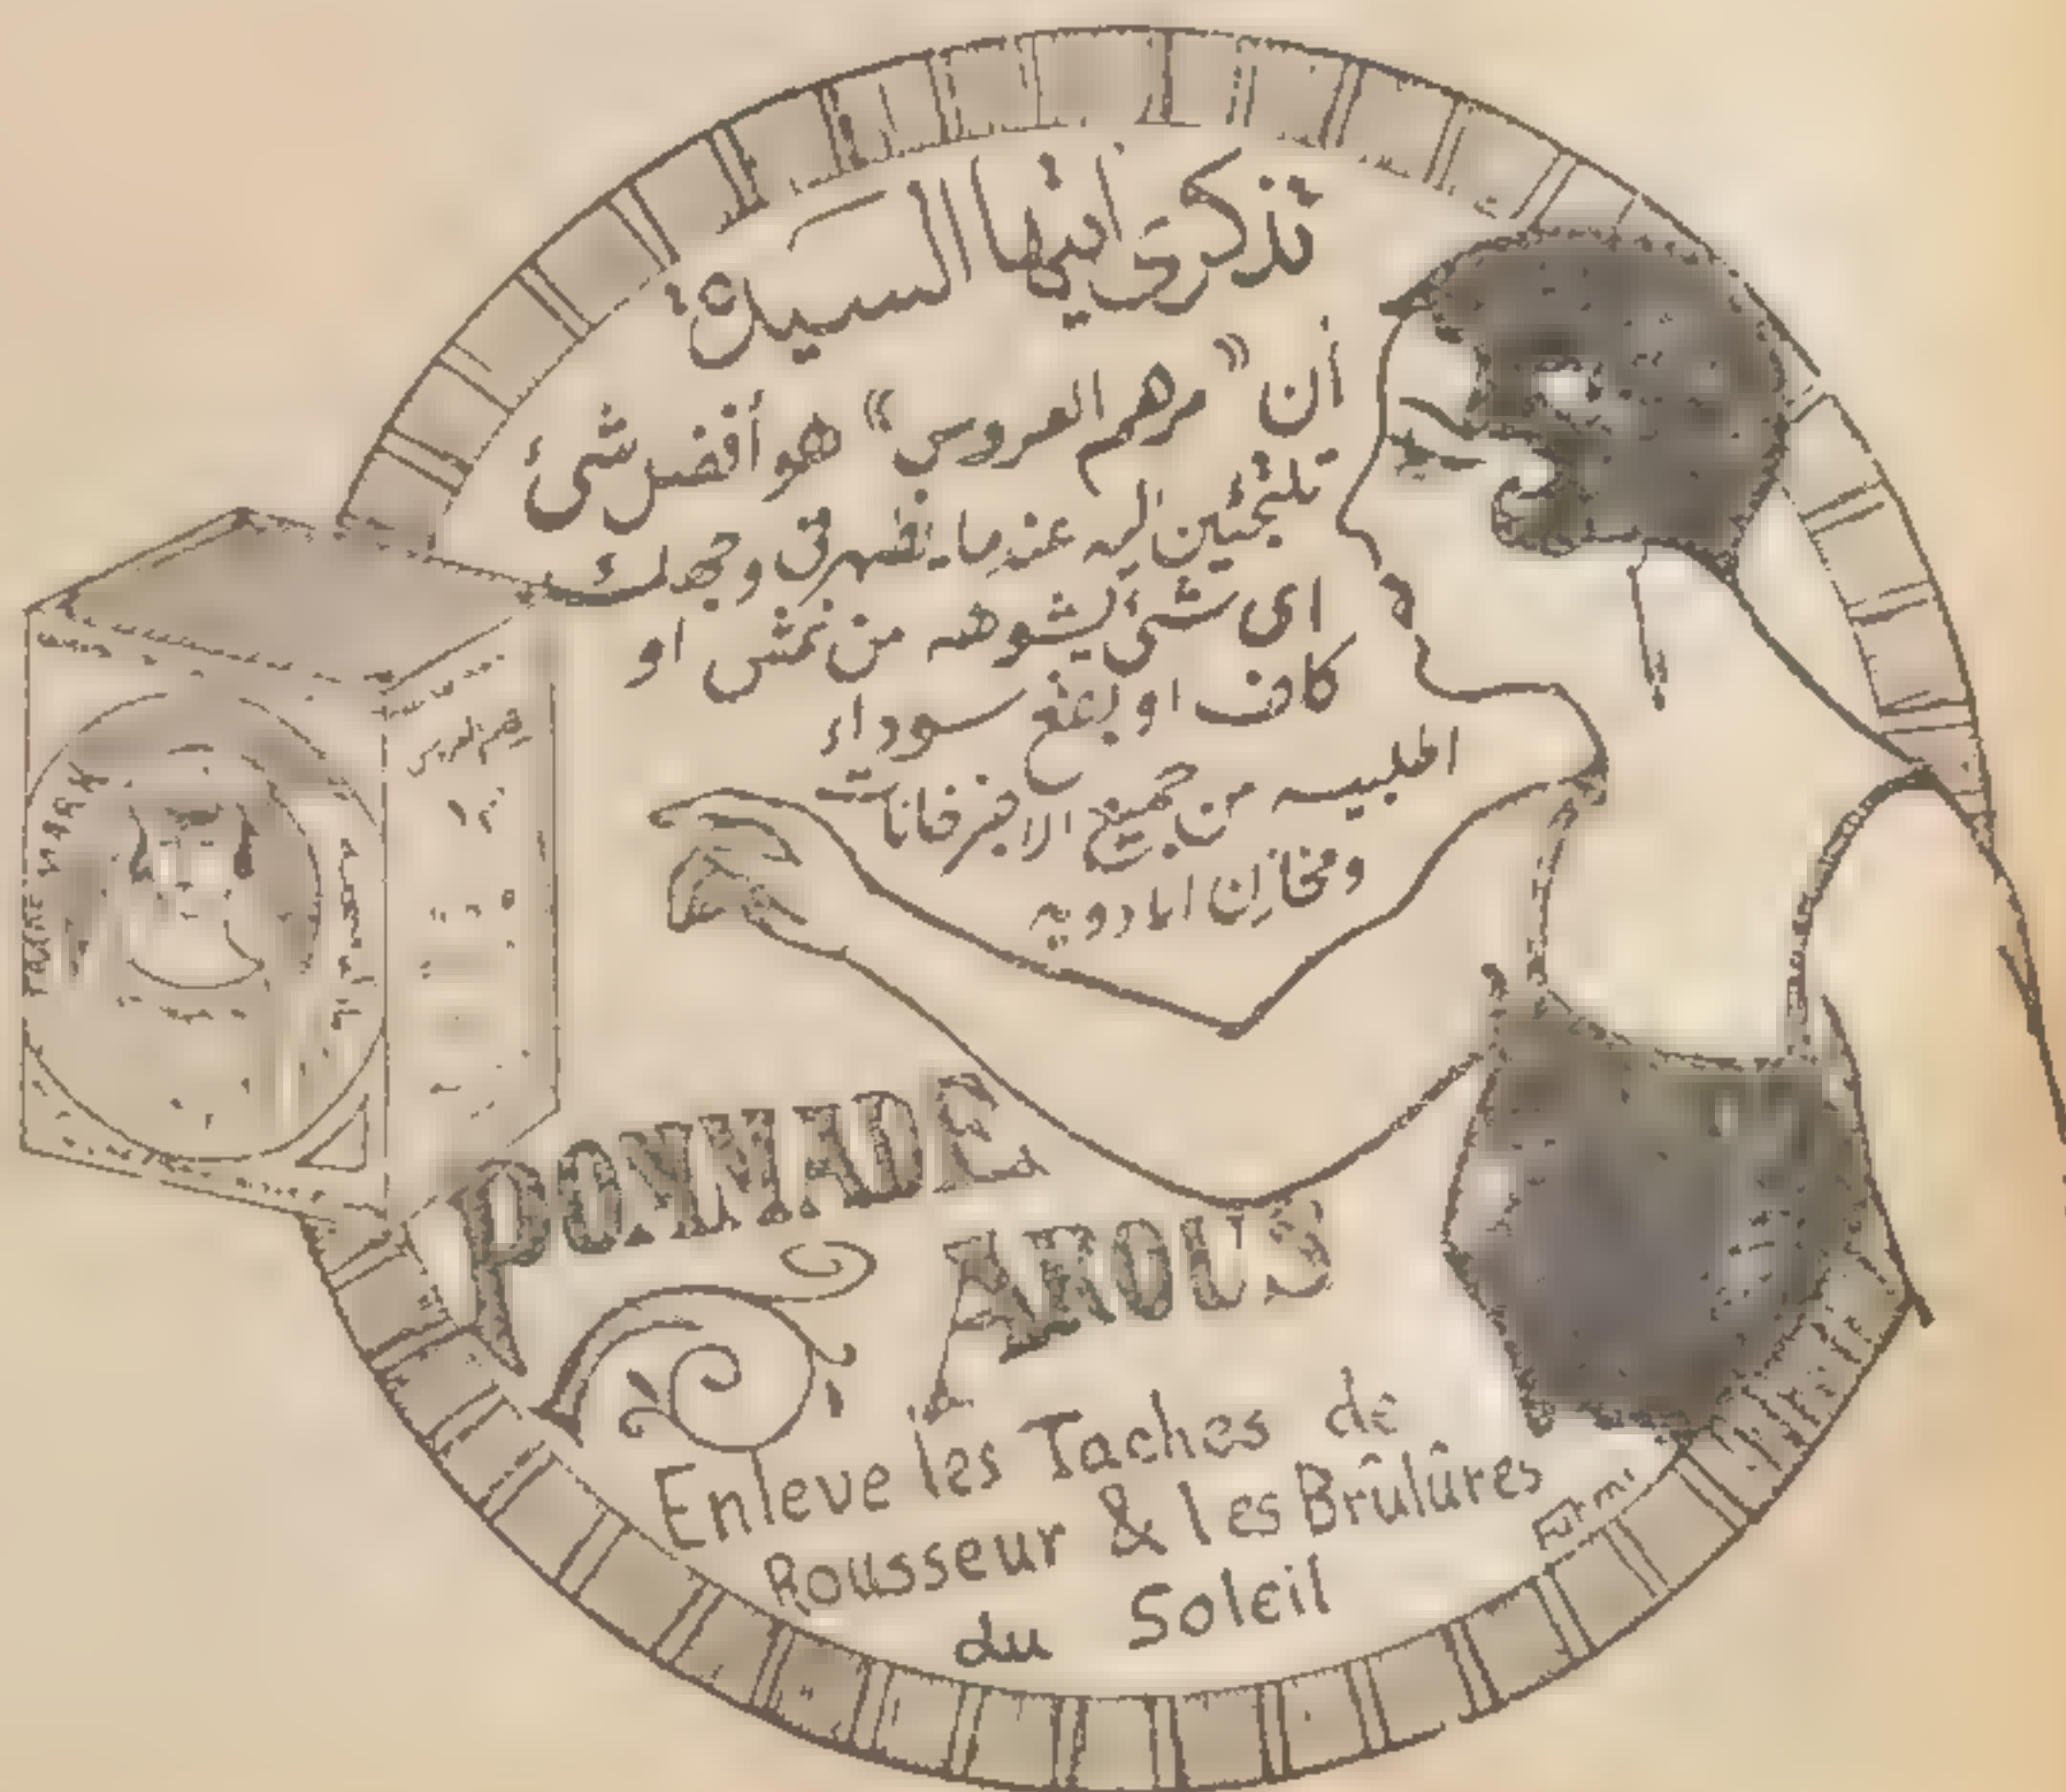 تذكرى ايتها السيدة
أن "مرهم العروس" هو أفضل شئ
تلتجئين اليه عندما يظهر فى وجهك
اى شئ يشوهه من نمش او
كلف او بقع سوداء
اطلبيه من جميع الاجزخانات
ومخازن الادويه
مرهم العروس
TRADE MARK
POMMADE
AROUS
Enleve les Taches de
Rousseur & les Brûlûres
du Soleil